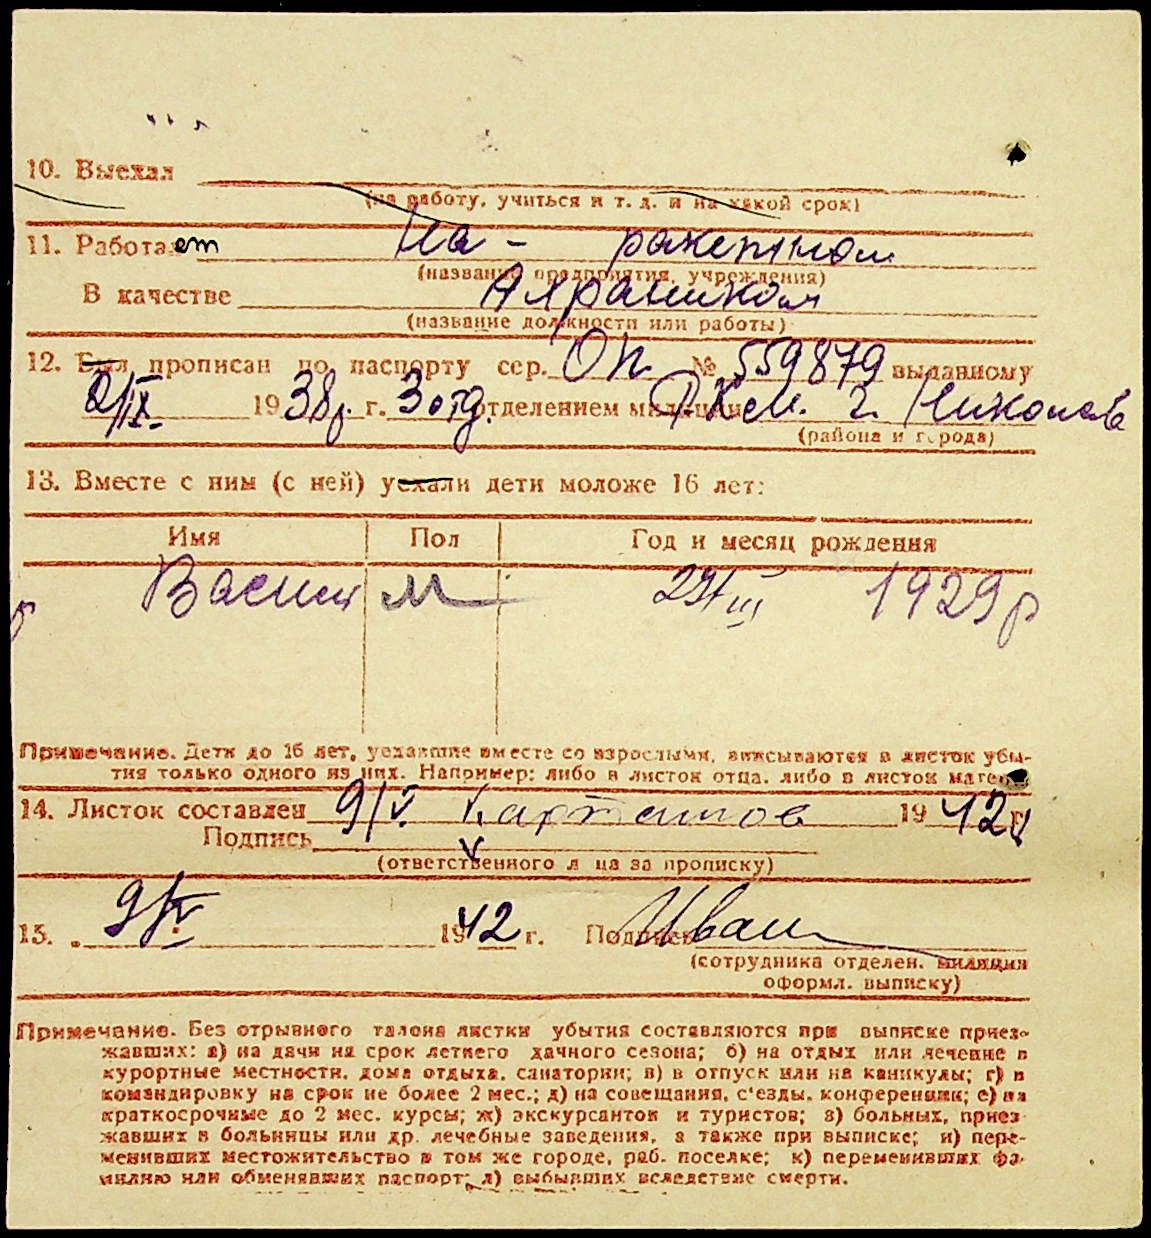 10. Выехал
(на работу, учиться и т. д. и на какой срок)
11. Работает На -
(название предприятия, учреждения)
В качестве
(название должности или работы)
12. Был прописан по паспорту сер. ОП. № 559879 выданному
2/IX. 1938 г. г. 3 отд. отделением милиции РКМ. г.
(района и города)
13. Вместе с ним (с ней) уехали дети моложе 16 лет:
Имя Пол Год и месяц рождения
Васили М 29/III 1929 р
Примечание. Дети до 16 лет, уехавшие вместе со взрослыми, вписываются в листок убы-
тия только одного из них. Например: либо в листок отца, либо в листок матери
14. Листок составлен 9/V. 1942 г.
Подпись
(ответственного лица за прописку)
15. 9/V 1942 г. Подпись Иван
(сотрудника отделен. милиции
оформл. выписку)
Примечание. Без отрывного талона листки убытия составляются при выписке приез-
жавших: а) на дачи на срок летнего дачного сезона; б) на отдых или лечение в
курортные местности, дома отдыха, санатории; в) в отпуск или на каникулы; г) в
командировку на срок не более 2 мес.; д) на совещания, с'езды, конференции; е) на
краткосрочные до 2 мес. курсы; ж) экскурсантов и туристов; з) больных, приез-
жавших в больницы или др. лечебные заведения, а также при выписке; и) пере-
менивших местожительство в том же городе, раб. поселке; к) переменивших фа-
милию или обменявших паспорт; л) выбывших вследствие смерти.